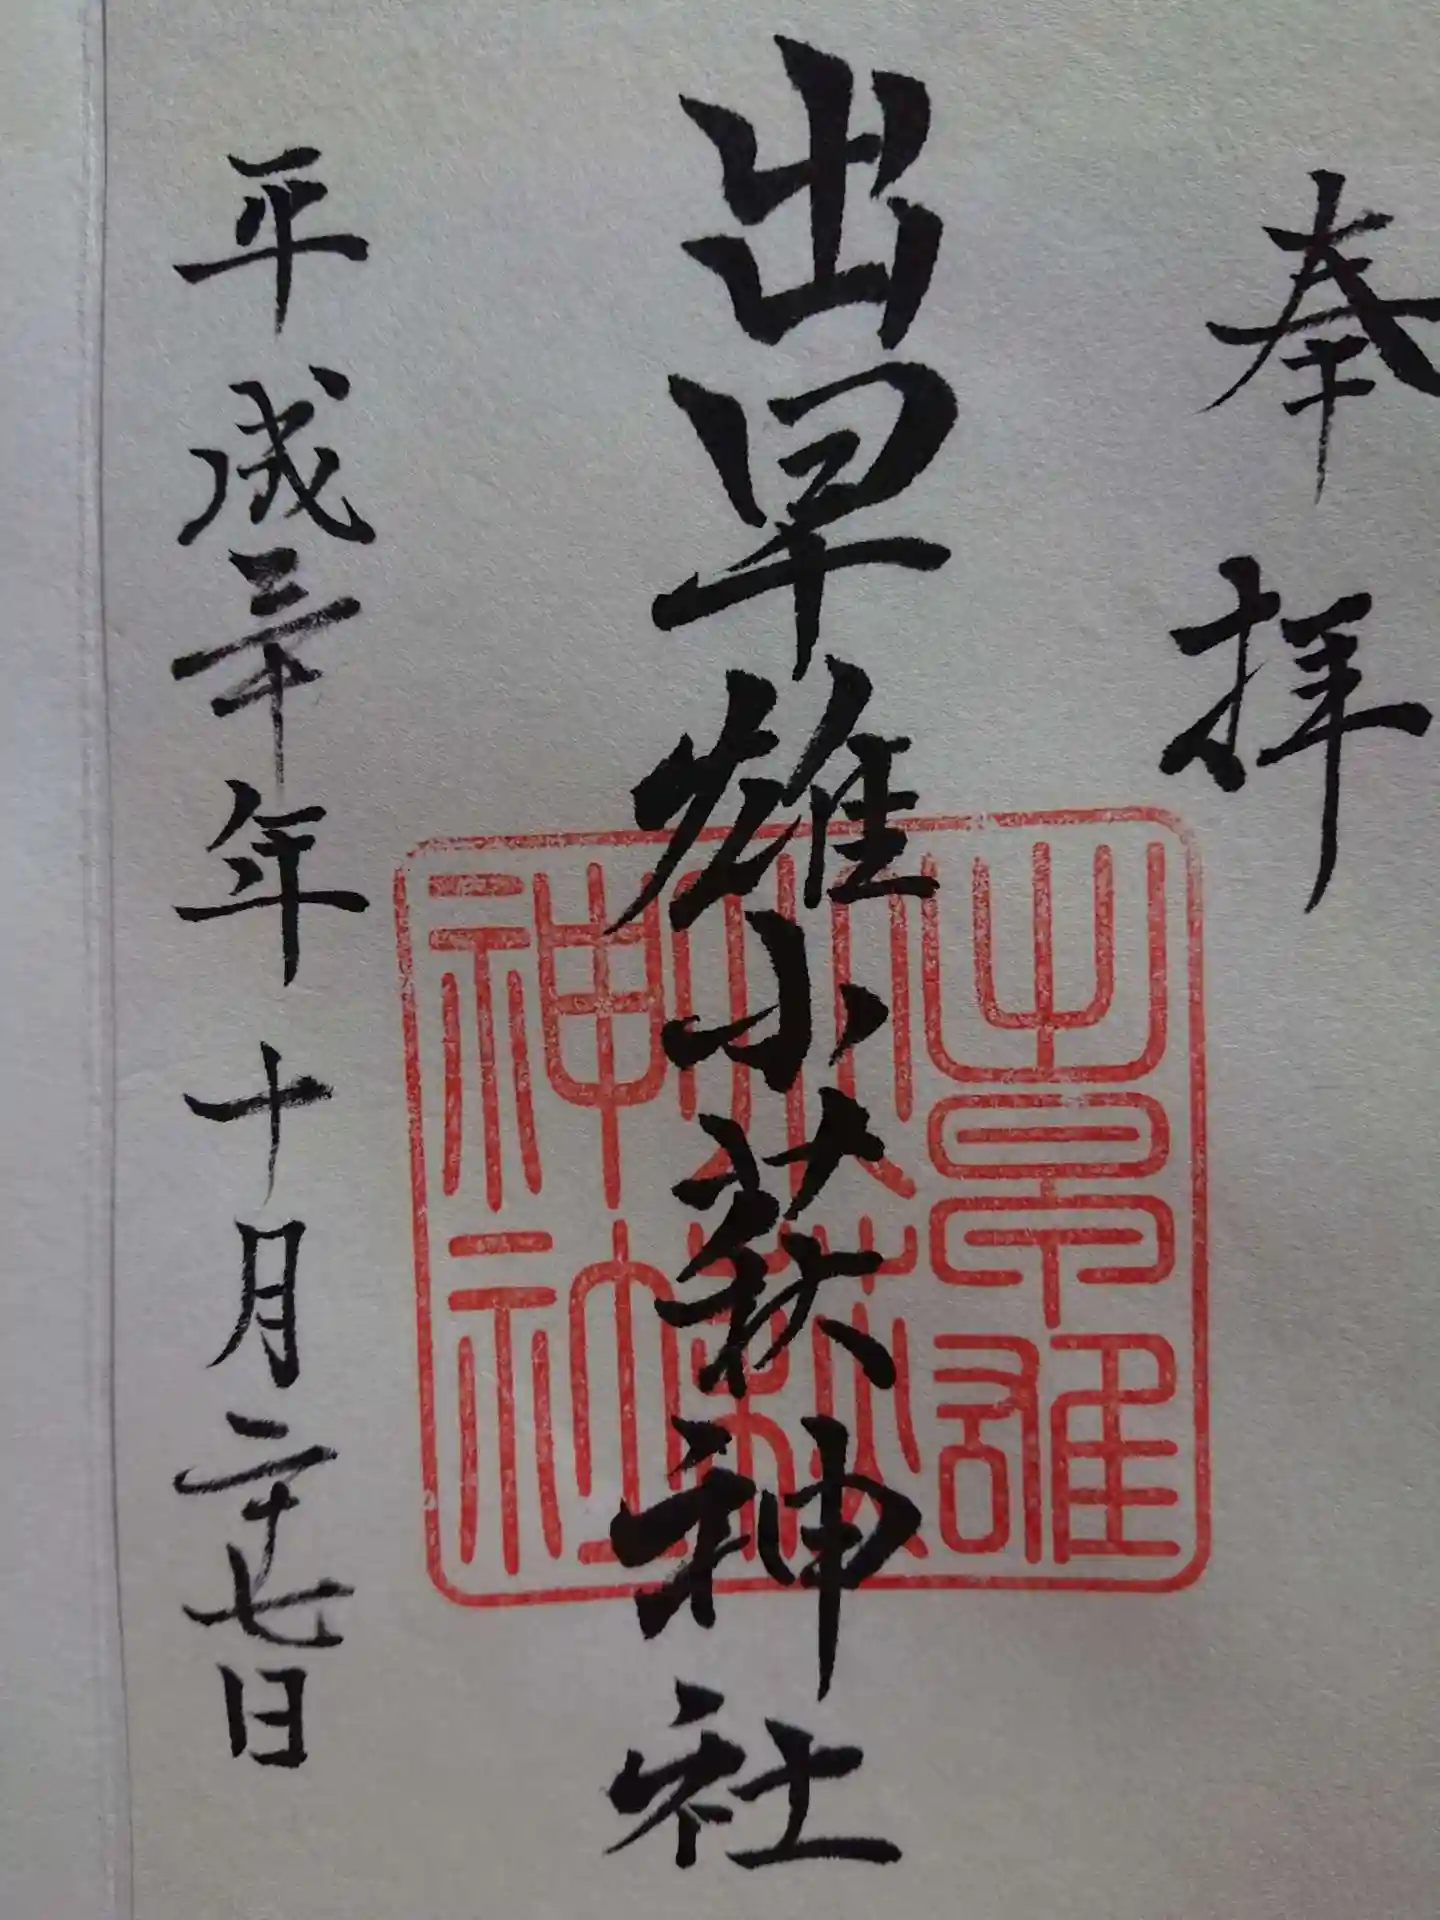 奉拝
出早雄小萩神社
出早雄
小萩
神社
平成三十年十月二十七日